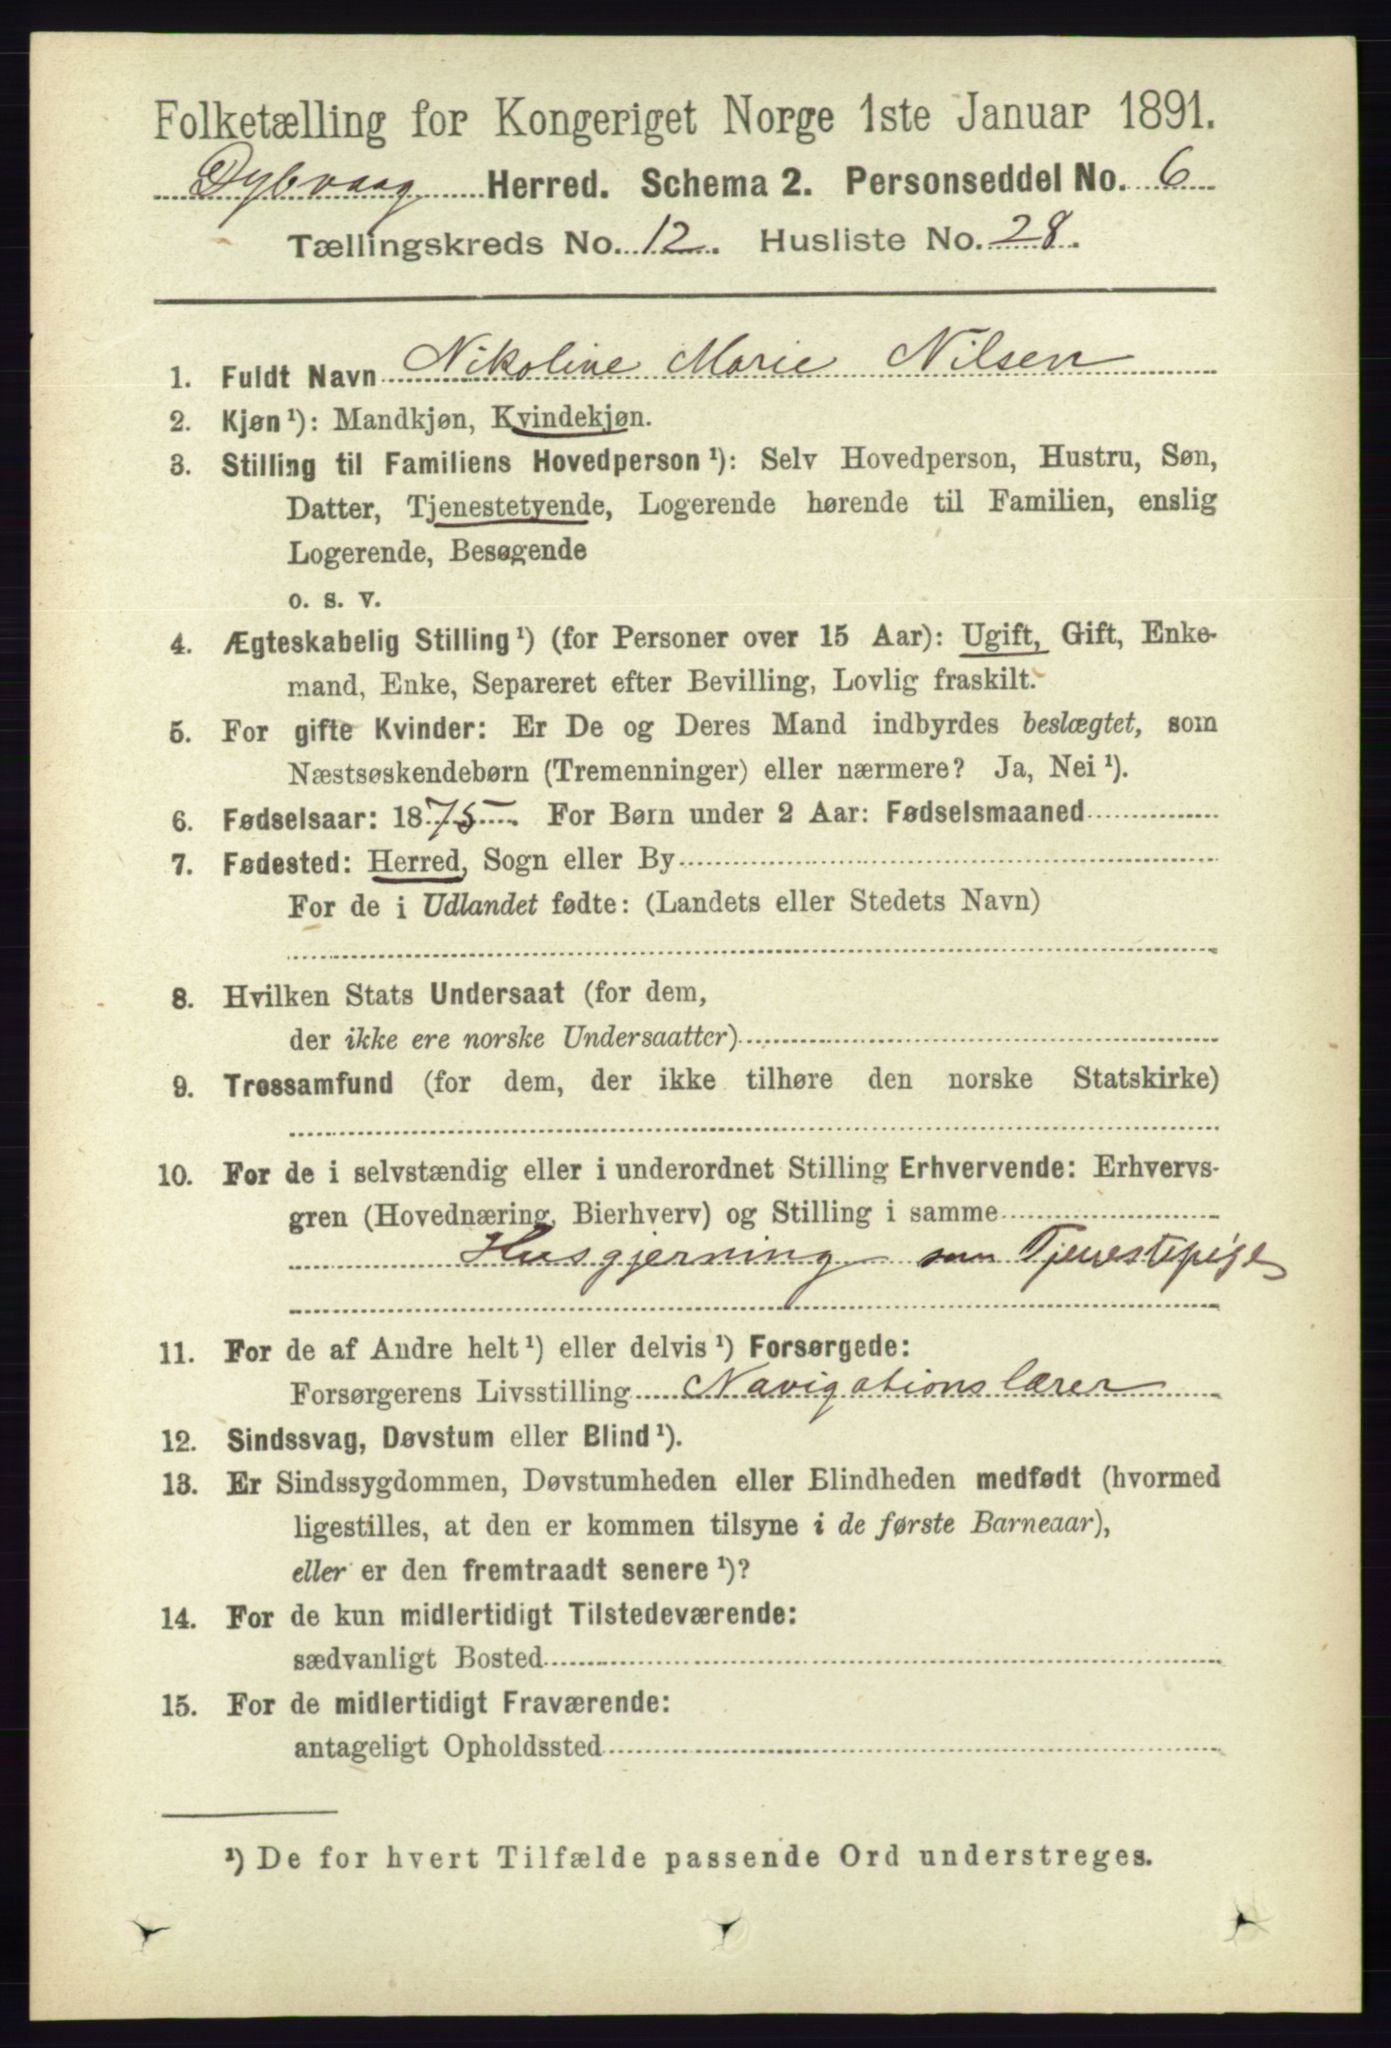 Folketælling for Kongeriget Norge 1ste Januar 1891.
Dybvaag Herred. Schema 2. Personseddel No. 6
Tællingskreds No. 12. Husliste No. 28.
1. Fuldt Navn Nikoline Marie Nilsen
2. Kjøn¹): Mandkjøn, Kvindekjøn.
3. Stilling til Familiens Hovedperson¹): Selv Hovedperson, Hustru, Søn,
Datter, Tjenestetyende, Logerende hørende til Familien, enslig
Logerende, Besøgende
o. s. v.
4. Ægteskabelig Stilling¹) (for Personer over 15 Aar): Ugift, Gift, Enke-
mand, Enke, Separeret efter Bevilling, Lovlig fraskilt.
5. For gifte Kvinder: Er De og Deres Mand indbyrdes beslægtet, som
Næstsøskendebørn (Tremenninger) eller nærmere? Ja, Nei¹).
6. Fødselsaar: 1875. For Børn under 2 Aar: Fødselsmaaned
7. Fødested: Herred, Sogn eller By
For de i Udlandet fødte: (Landets eller Stedets Navn)
8. Hvilken Stats Undersaat (for dem,
der ikke ere norske Undersaatter)
9. Trossamfund (for dem, der ikke tilhøre den norske Statskirke)
10. For de i selvstændig eller i underordnet Stilling Erhvervende: Erhvervs-
gren (Hovednæring, Bierhverv) og Stilling i samme
Husgjerning som Tjenestepige
11. For de af Andre helt¹) eller delvis¹) Forsørgede:
Forsørgerens Livsstilling Navigationslærer
12. Sindssvag, Døvstum eller Blind¹).
13. Er Sindssygdommen, Døvstumheden eller Blindheden medfødt (hvormed
ligestilles, at den er kommen tilsyne i de første Barneaar),
eller er den fremtraadt senere¹)?
14. For de kun midlertidigt Tilstedeværende:
sædvanligt Bosted
15. For de midlertidigt Fraværende:
antageligt Opholdssted
¹) De for hvert Tilfælde passende Ord understreges.